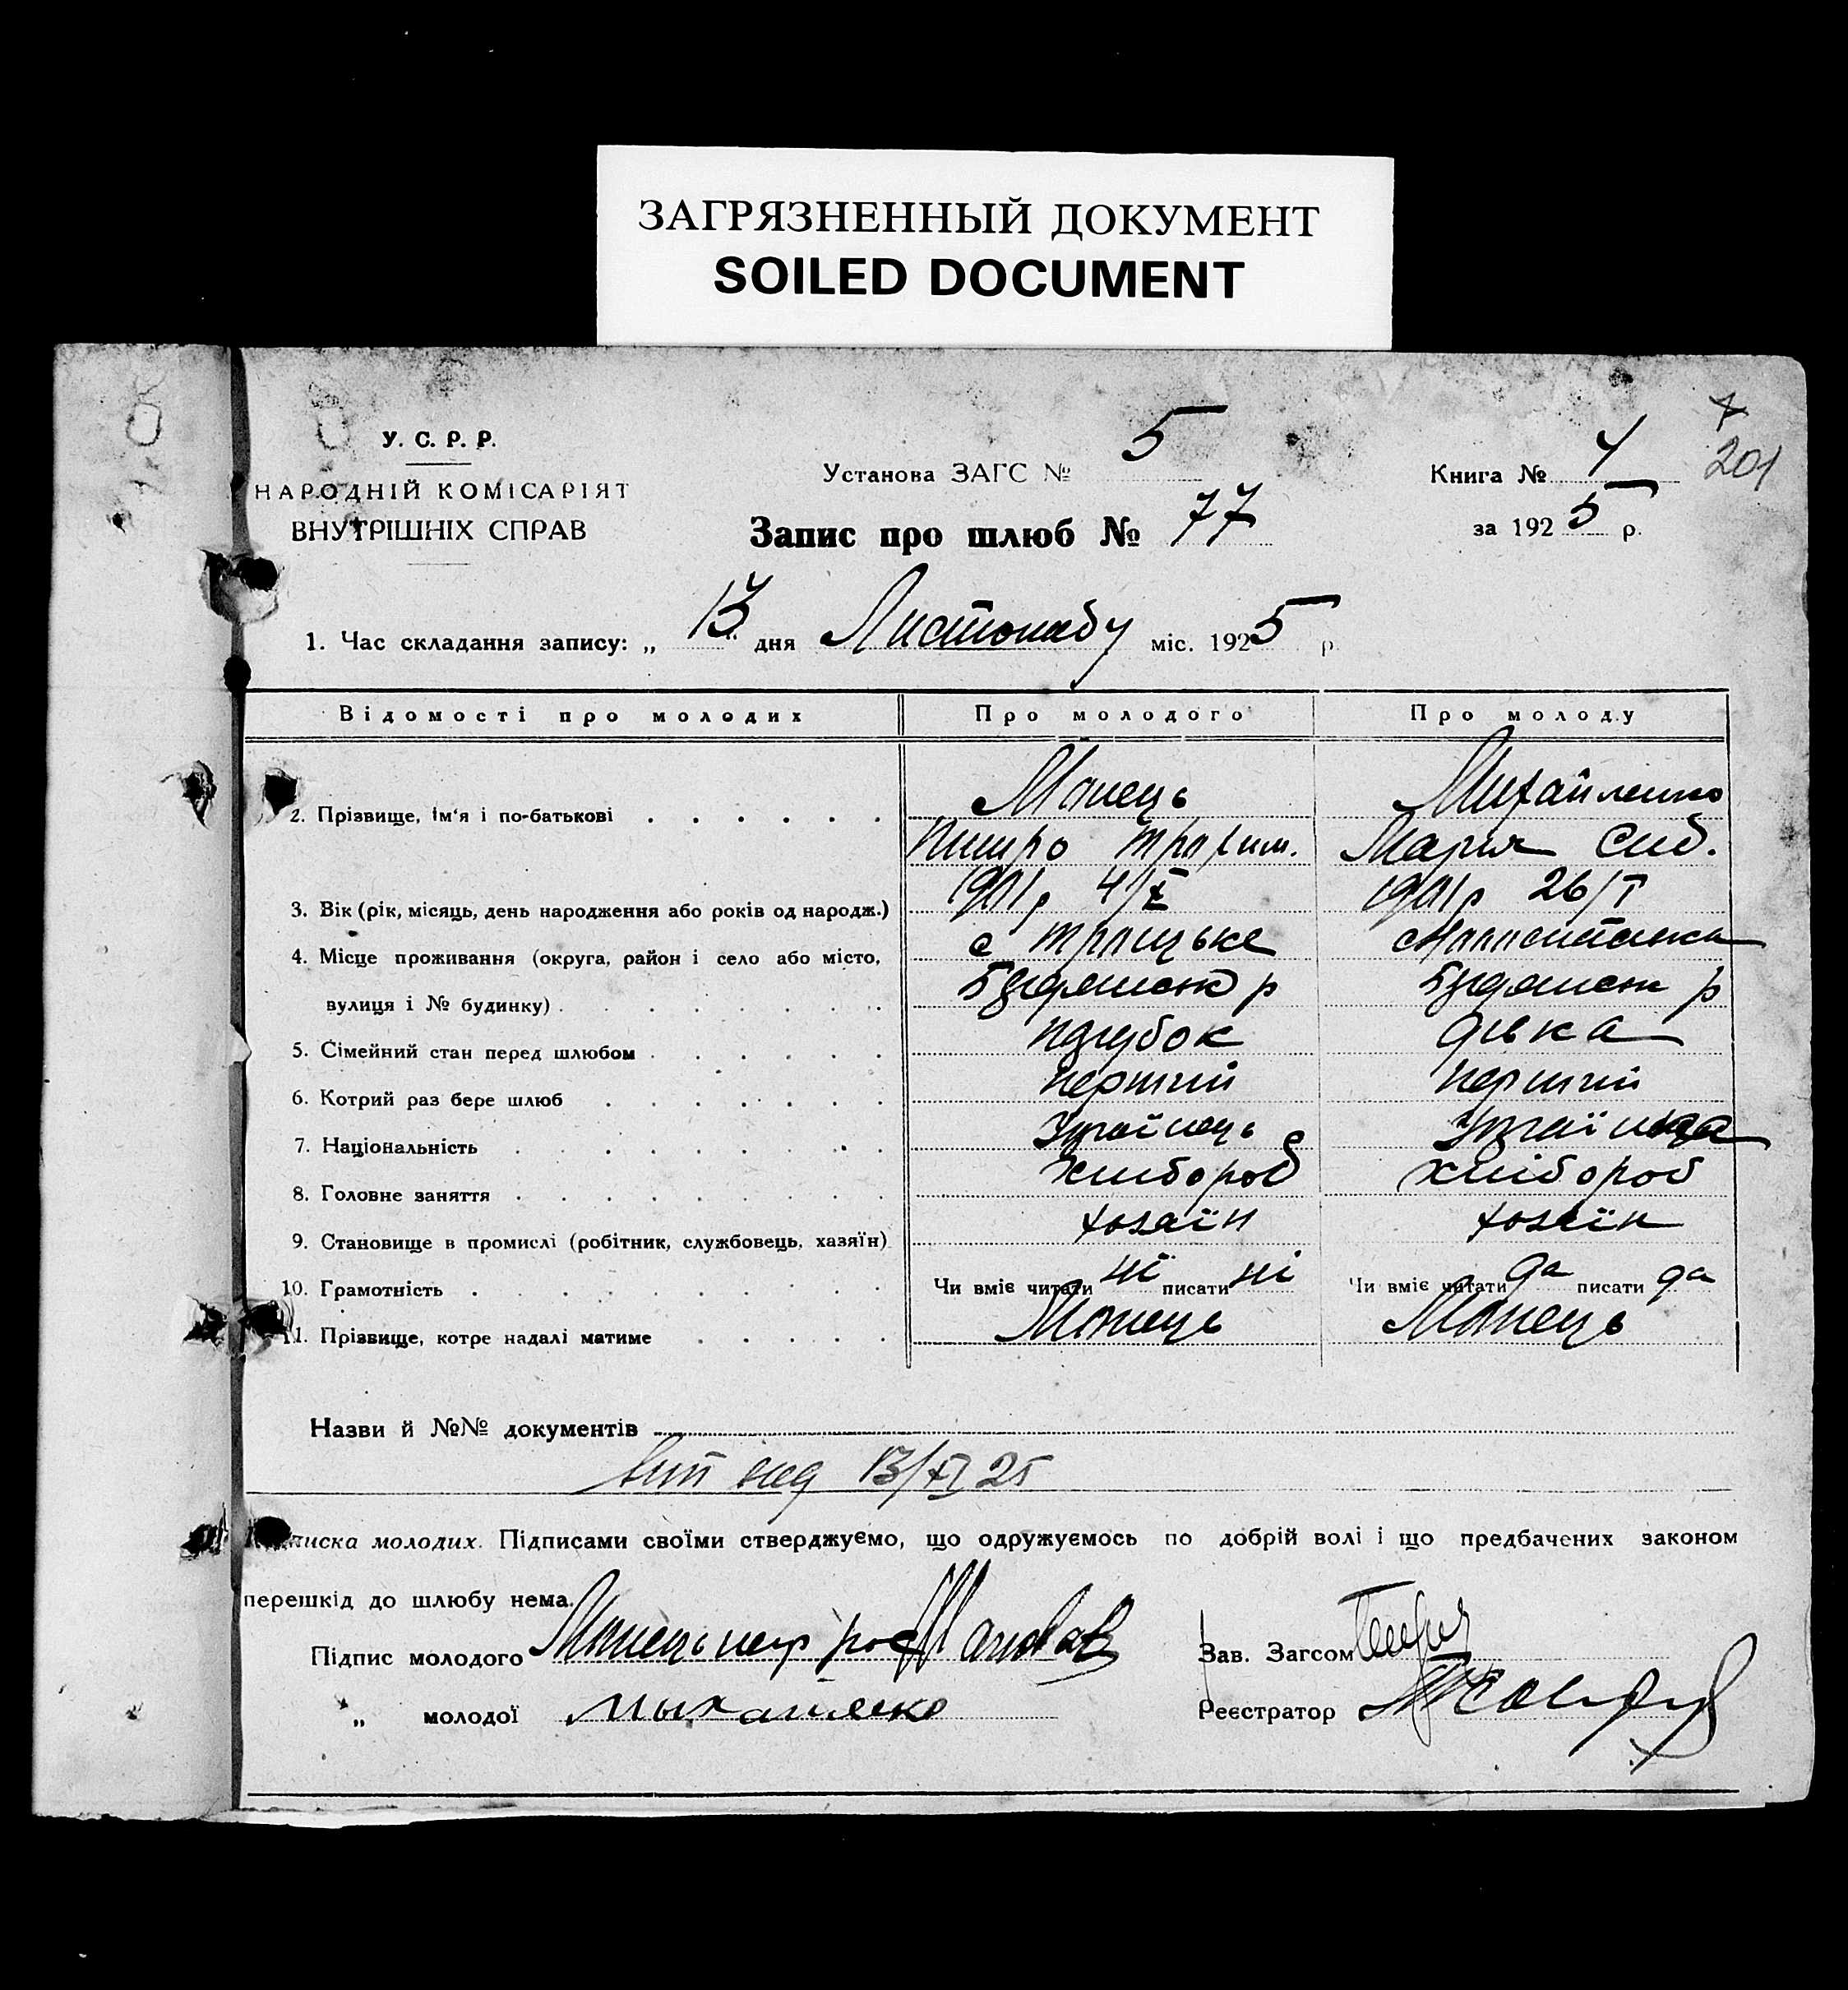 ЗАГРЯЗНЕННЫЙ ДОКУМЕНТ
SOILED DOCUMENT
У. С. Р. Р.
НАРОДНІЙ КОМІСАРІЯТ
ВНУТРІШНІХ СПРАВ
Установа ЗАГС № 5
Запис про шлюб № 77
Книга № 4
201
за 1925 р.
1. Час складання запису: „ 13 " дня Листопаду міс. 1925 р
Відомості про молодих Про молодого Про молоду
2. Прізвище, ім'я і по-батькові Манець Михайленко
Петро Трохим. Мария Сид.
3. Вік (рік, місяць, день народження або років од народж.) 1901р 4/X 1901р 26/I
4. Місце проживання (округа, район і село або місто, с Троицьке
вулиця і № будинку) р р
5. Сімейний стан перед шлюбом парубок дівка
6. Котрий раз бере шлюб перший перший
7. Національність Україنець Україنка
8. Головне заняття хлібороб хлібороб
9. Становище в промислі (робітник, службовець, хазяїн) хозаїн хозаїн
10. Грамотність Чи вміє читати ні писати ні Чи вміє читати да писати да
11. Прізвище, котре надалі матиме Манець Манець
Назви й №№ документів
13/XI 25
писка молодих. Підписами своїми стверджуємо, що одружуємось по добрій волі і що предбачених законом
перешкід до шлюбу нема.
Підпис молодого Манець
Зав. Загсом
„ молодої Мыхайлеко
Реєстратор